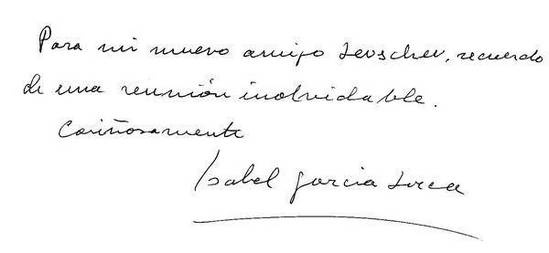 Para mi nuevo amigo, recuerdo
de una reunión inolvidable.
Cariñosamente
Isabel García Lorca